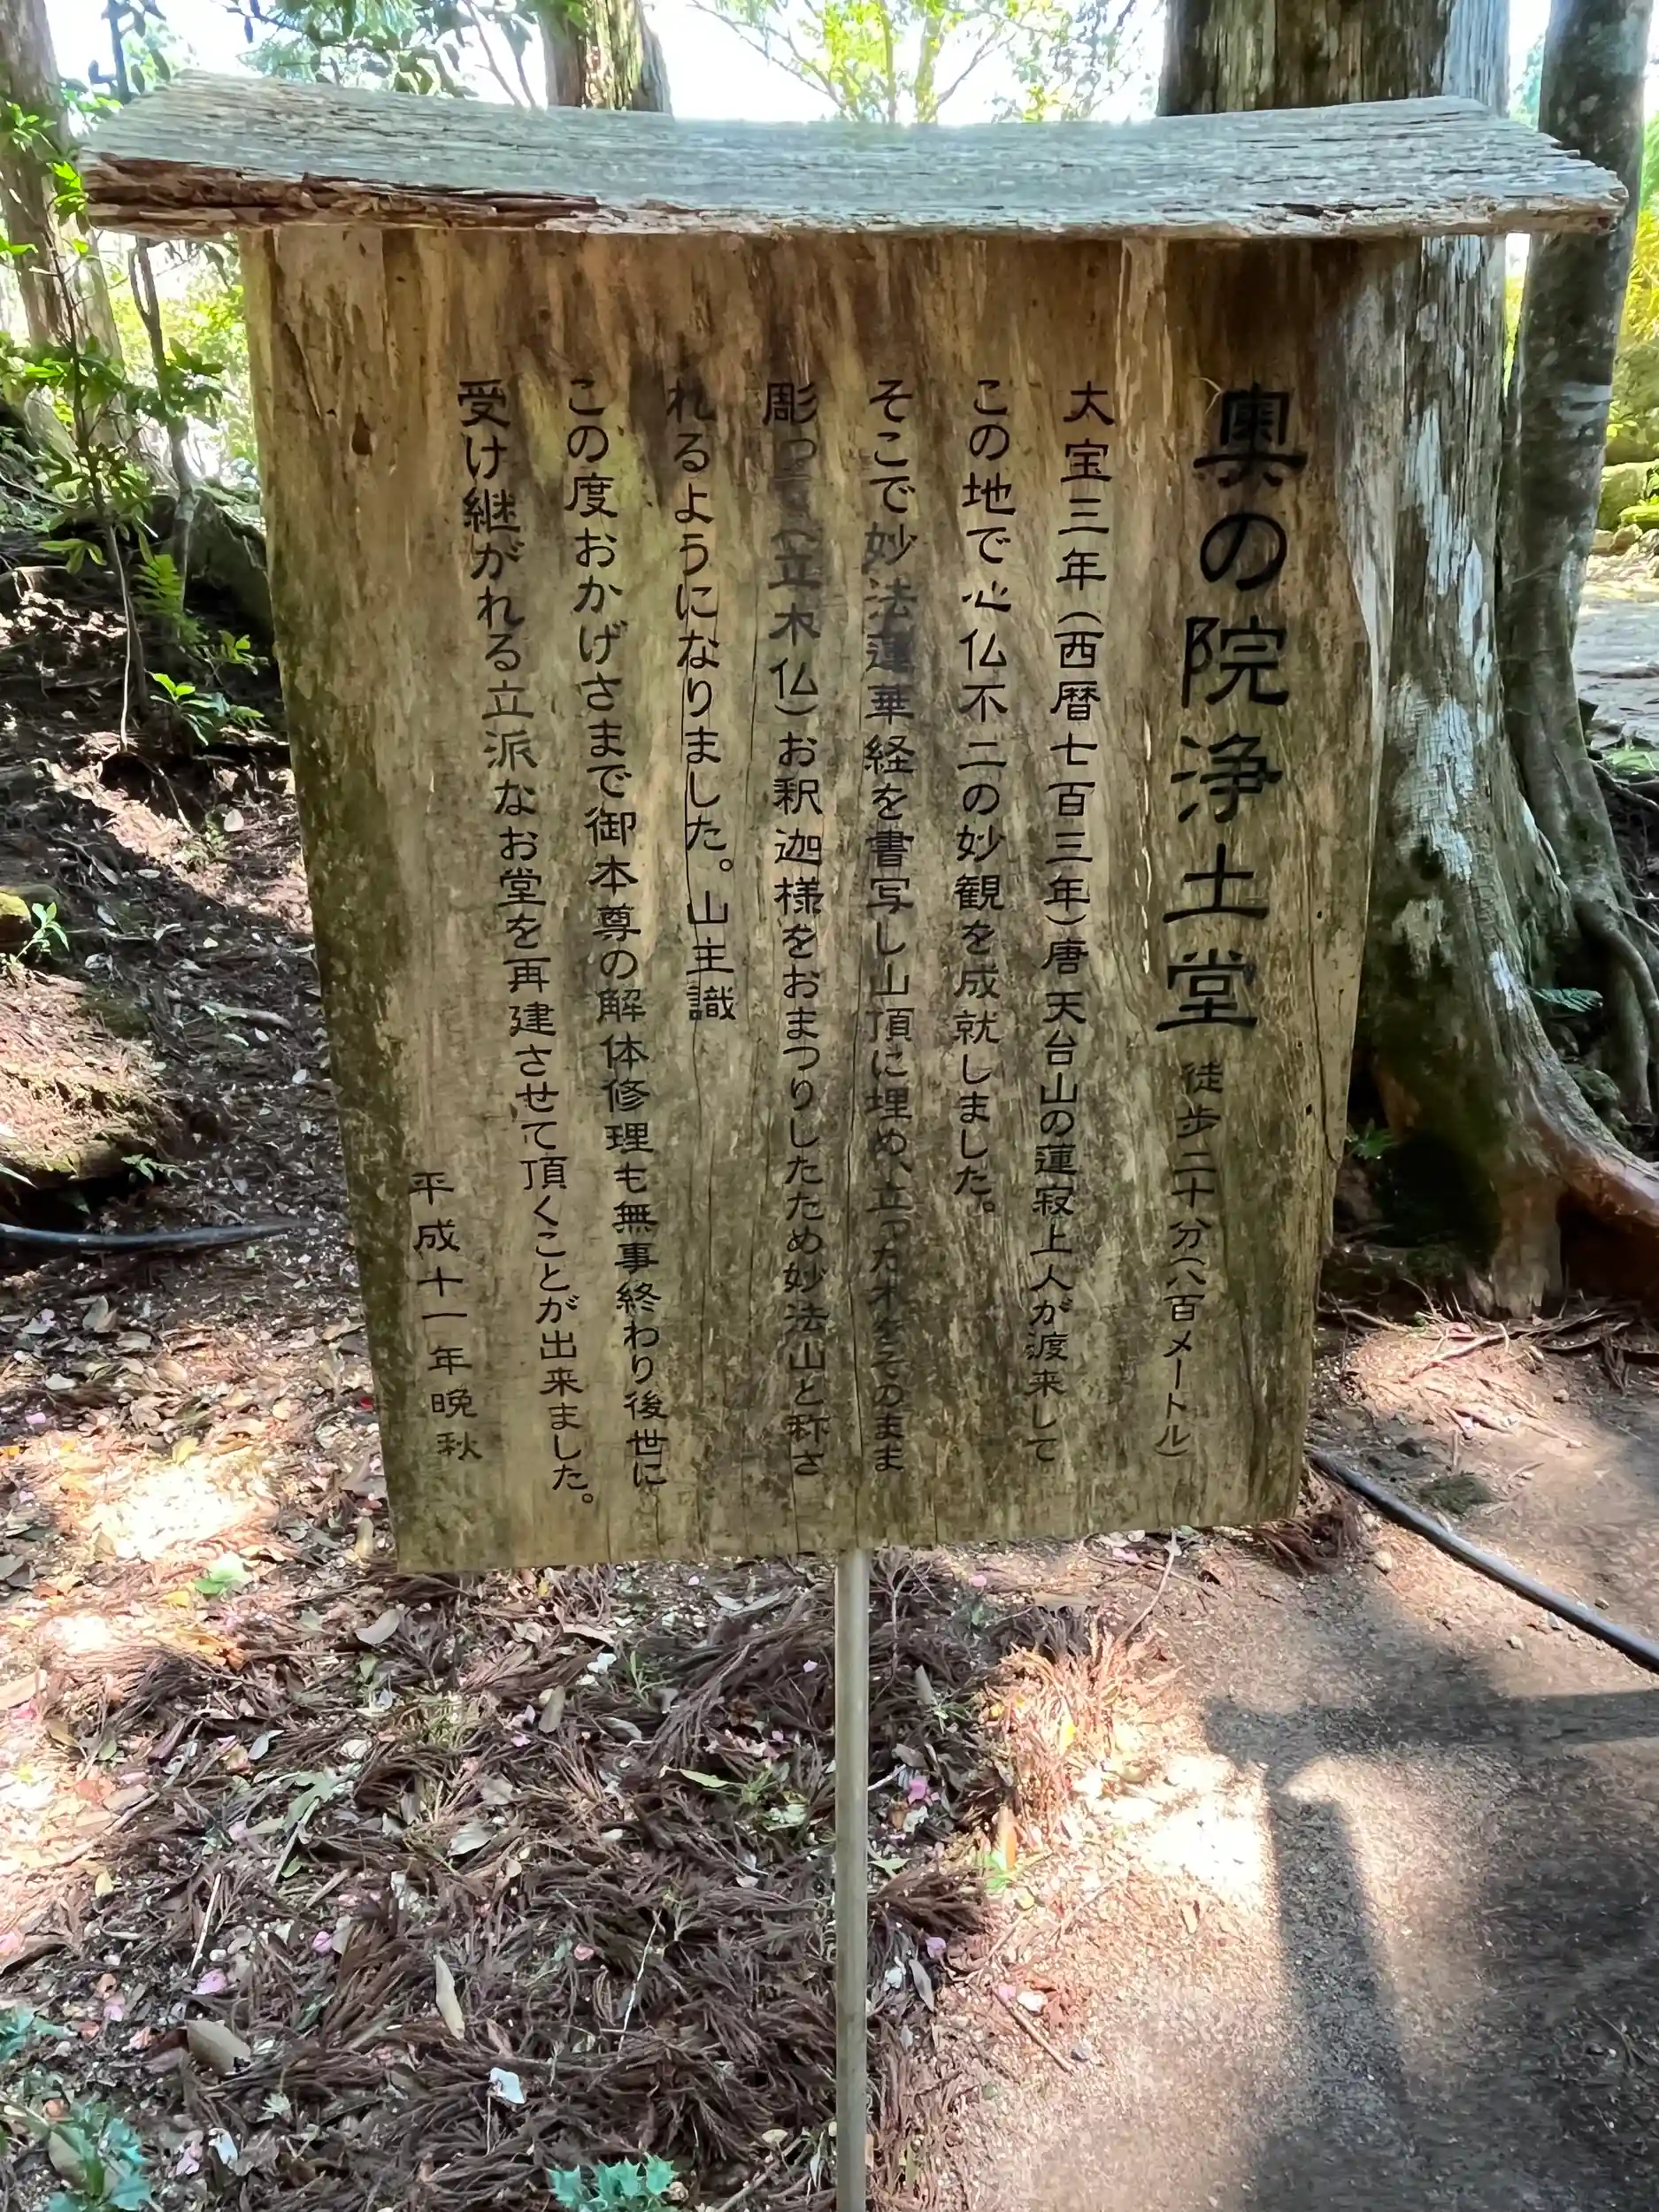 奥の院浄土堂 徒歩二十分(八百メートル)
大宝三年(西暦七百三年)唐天台山の蓮寂上人が渡来して
この地で心仏不二の妙観を成就しました。
そこで妙法蓮華経を書写し山頂に埋め、立った木をそのまま
彫って(立木仏)お釈迦様をおまつりしたため妙法山と称さ
れるようになりました。山主識
この度おかげさまで御本尊の解体修理も無事終わり後世に
受け継がれる立派なお堂を再建させて頂くことが出来ました。
平成十一年晩秋